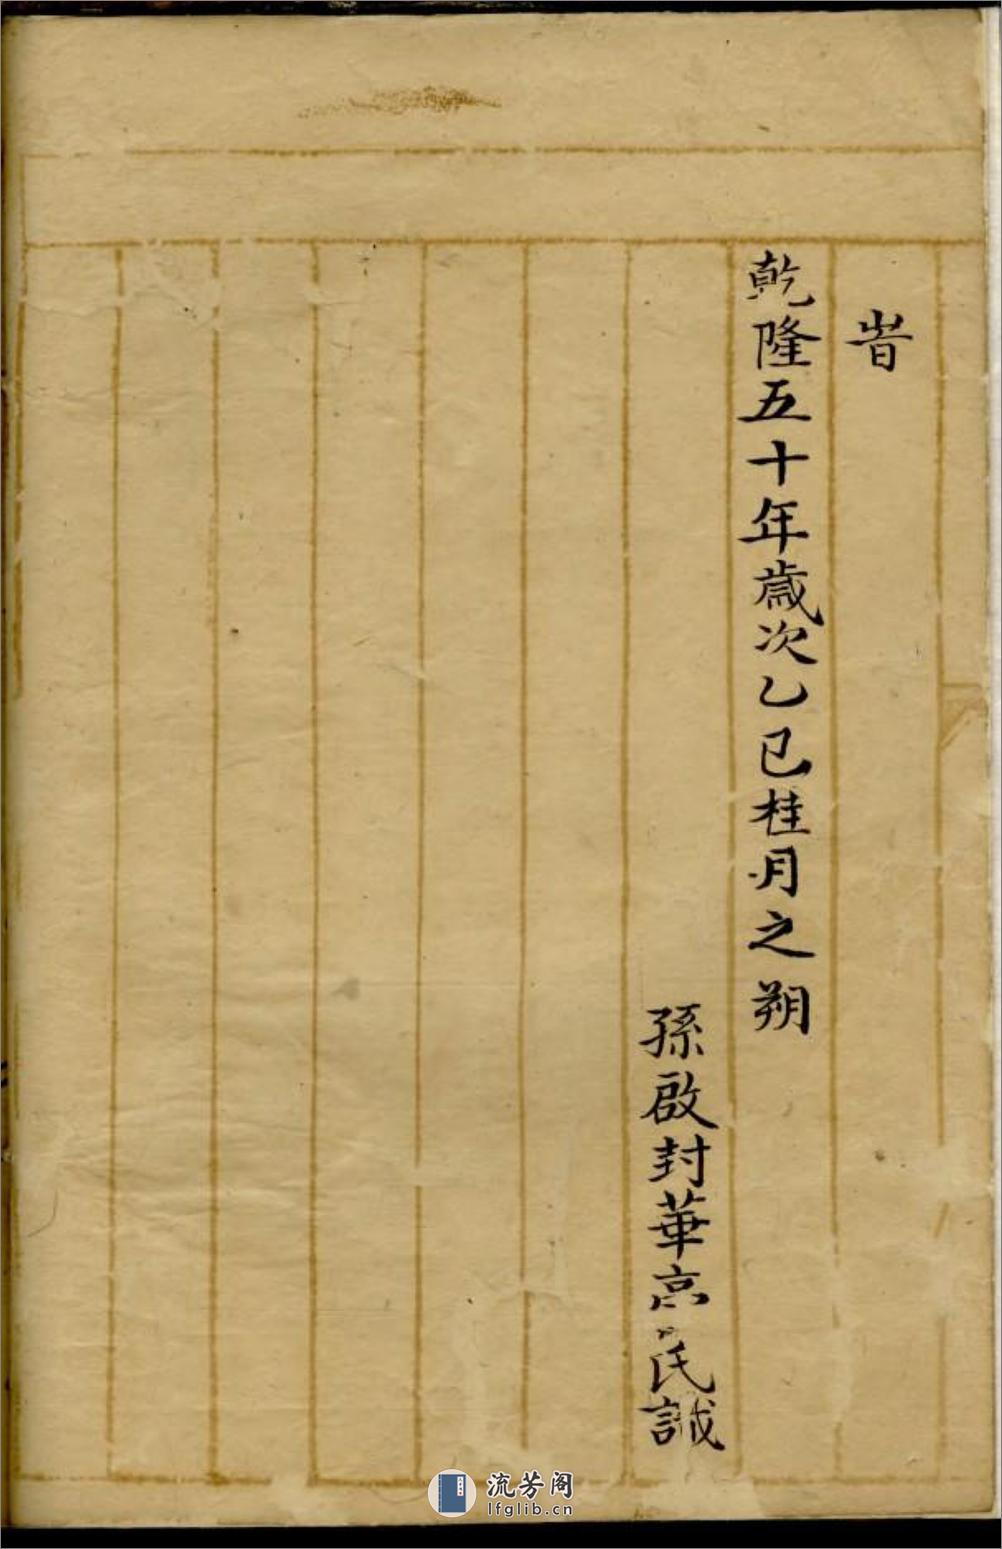 旹
乾隆五十年歲次乙巳桂月之朔
孫啟封華氏誠
流芳阁
lfglib.cn